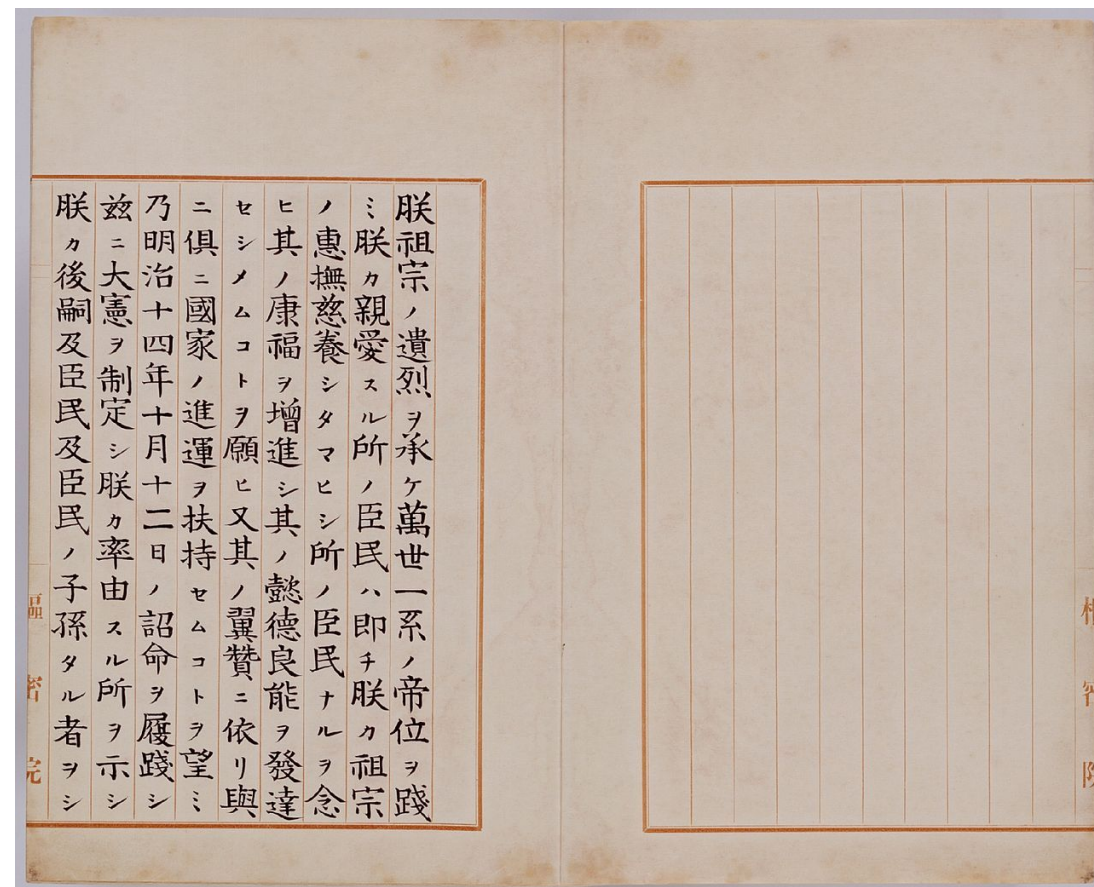 朕祖宗ノ遺烈ヲ承ケ萬世一系ノ帝位ヲ踐
ミ朕カ親愛スル所ノ臣民ハ即チ朕カ祖宗
ノ惠撫慈養シタマヒシ所ノ臣民ナルヲ念
ヒ其ノ康福ヲ增進シ其ノ懿德良能ヲ發達
セシメムコトヲ願ヒ又其ノ翼贊ニ依リ與
ニ俱ニ國家ノ進運ヲ扶持セムコトヲ望ミ
乃明治十四年十月十二日ノ詔命ヲ履踐シ
玆ニ大憲ヲ制定シ朕カ率由スル所ヲ示シ
朕カ後嗣及臣民及臣民ノ子孫タル者ヲシ
樞密院